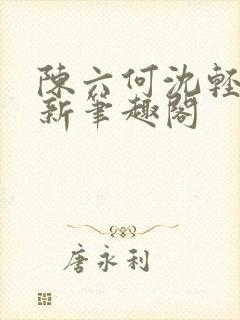 陳六何沈輕
新筆趣閣
唐永利